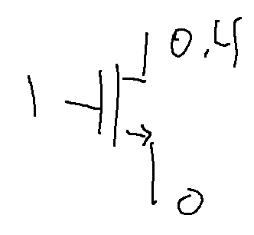 0.4
1
0